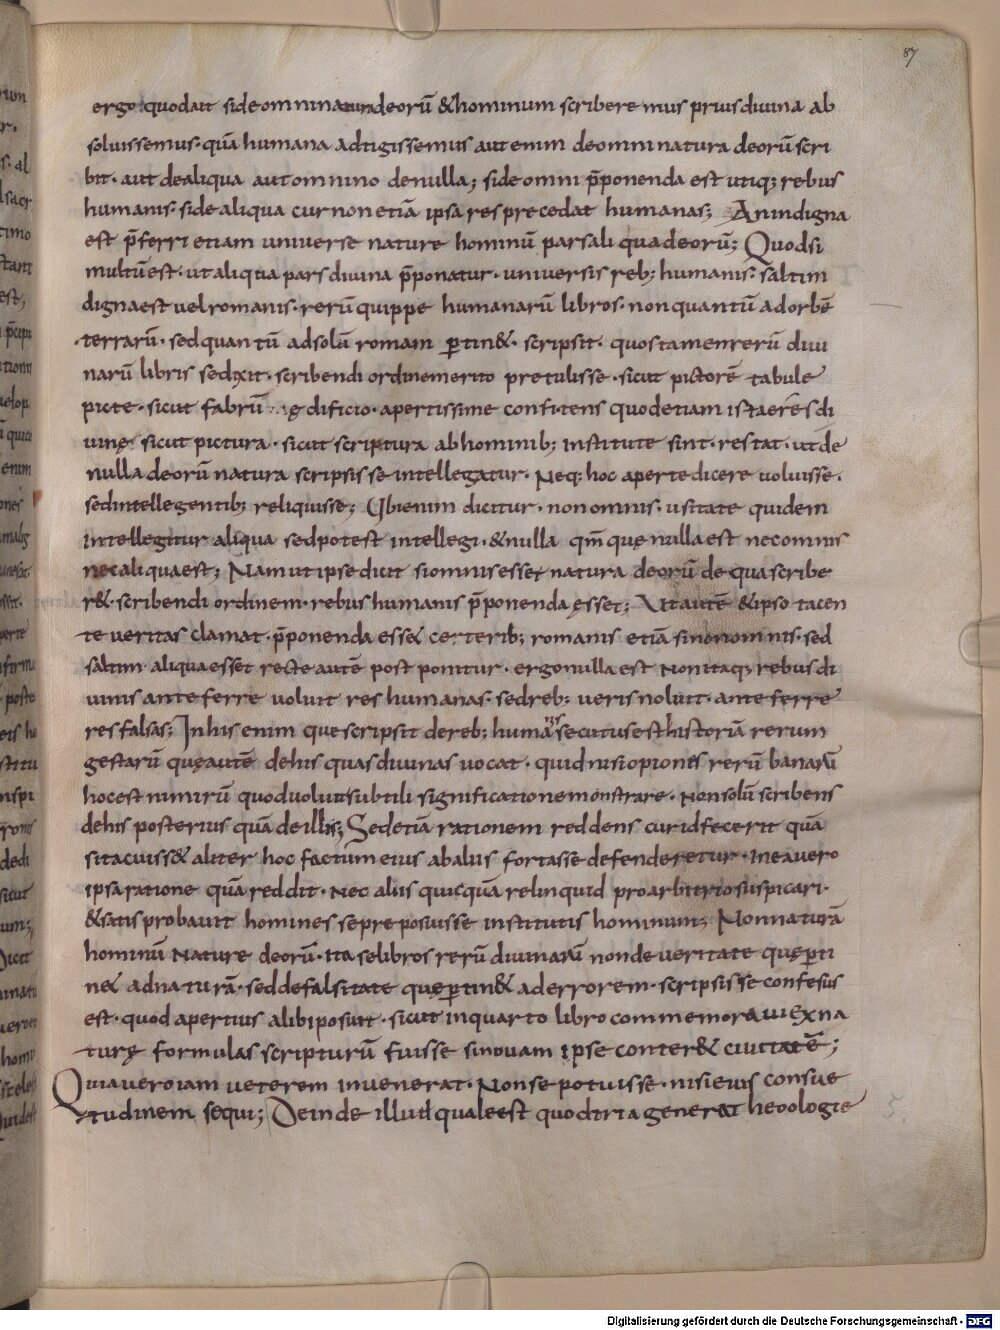 87
ergo quod ait si de omni natura deorū & hominum scriberemus prius diuina ab
soluissemus· quā humana adtigissemus aut enim de omni natura deorū scri
bit· aut de aliqua aut omnino de nulla; si de omni p̄ponenda est utiq; rebus
humanis· si de aliqua cur non etiā ipsa res precedat humanas; An indigna
est p̄ferri etiam uniuerse nature hominū pars aliqua deorū; Quod si
multū est· ut aliqua pars diuina p̄ponatur· uniuersis reb; humanis· saltim
digna est uel romanis· rerū quippe humanarū libros· non quantū ad orbē
terrarū· sed quantū ad solā romam ꝑtin&· scripsit· quos tamen rerū diui
narū libris se dixit· scribendi ordine merito pretulisse· sicut pictorē tabule
picte· sicut fabrū ędificio· apertissime confitens quod etiam istae res di
uinę sicut pictura· sicut scriptura ab hominib; institute sint· restat· ut de
nulla deorū natura scripsisse intellegatur· Neq; hoc aperte dicere uoluisse·
sed intellegentib; reliquisse; Ubi enim dicitur· non omnis· usitate quidem
intellegitur aliqua sed potest intellegi· & nulla qm̄ que nulla est nec omnis
nec aliqua est; Nam ut ipse dicit si omnis esset natura deorū de qua scribe
r&· scribendi ordinem· rebus humanis p̄ponenda esset; Ut autē & ipso tacen
te ueritas clamat· p̄ponenda ess& certe reb; romanis etiā si non omnis· sed
saltim aliqua esset recte autē postponitur· ergo nulla est Non itaq; rebus di
uinis anteferre uoluit res humanas· sed reb; ueris noluit· anteferre
res falsas; In his enim que scripsit de reb; humanis secutus est historiā rerum
gestarū quę autē de his quas diuinas uocat· quid nisi opiones rerū uanarū
hoc est nimirū quod uoluit subtili significatione monstrare· Non solū scribens
de his posterius quā de illis; Sed etiā rationem reddens cur id fecerit quā
si tacuiss& aliter hoc factum eius ab aliis fortasse defenderetur· In ea uero
ipsa ratione quā reddit· Nec aliis quicquā relinquid pro arbitrio suspicari·
& satis probauit homines se preposuisse institutis hominum; Non naturā
hominū Nature deorū· Ita se libros rerū diuinarū non de ueritate quę ꝑti
n& ad naturā· sed de falsitate quę ꝑtin& ad errorem· scripsisse confesus
est· quod apertius alibi posuit· sicut in quarto libro commemoraui Ex na
turę formulas scripturū fuisse si nouam ipse conter& ciuitatē;
Quia uero iam ueterem inuenerat· Non se potuisse· nisi eius consue
tudinem sequi; Deinde illud quale est quod tria genera theologie
Digitalisierung gefördert durch die Deutsche Forschungsgemeinschaft - DFG